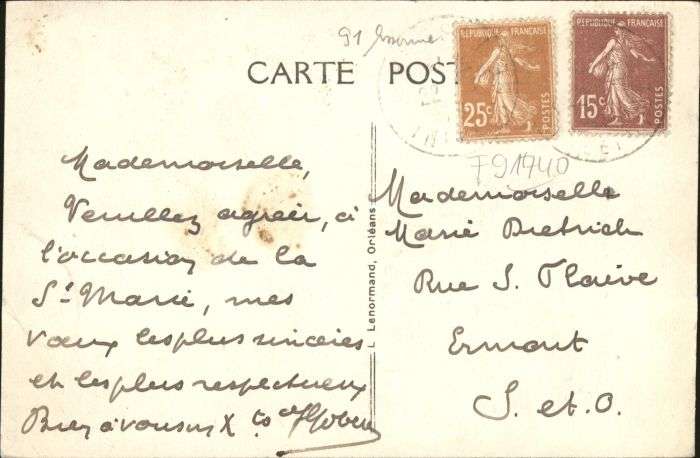 91 Essonne
CARTE POST
RÉPUBLIQUE FRANÇAISE
25c
POSTES
RÉPUBLIQUE FRANÇAISE
15c
POSTES
F91940
Mademoiselle,
Veuillez agréer, à
l'occasion de la
Ste Marie, mes
vœux les plus sincères
et les plus respectueux
Bien à vous
L. Lenormand, Orléans
Mademoiselle
Marie Dietrich
Rue S. Flaive
Ermont
S. et O.